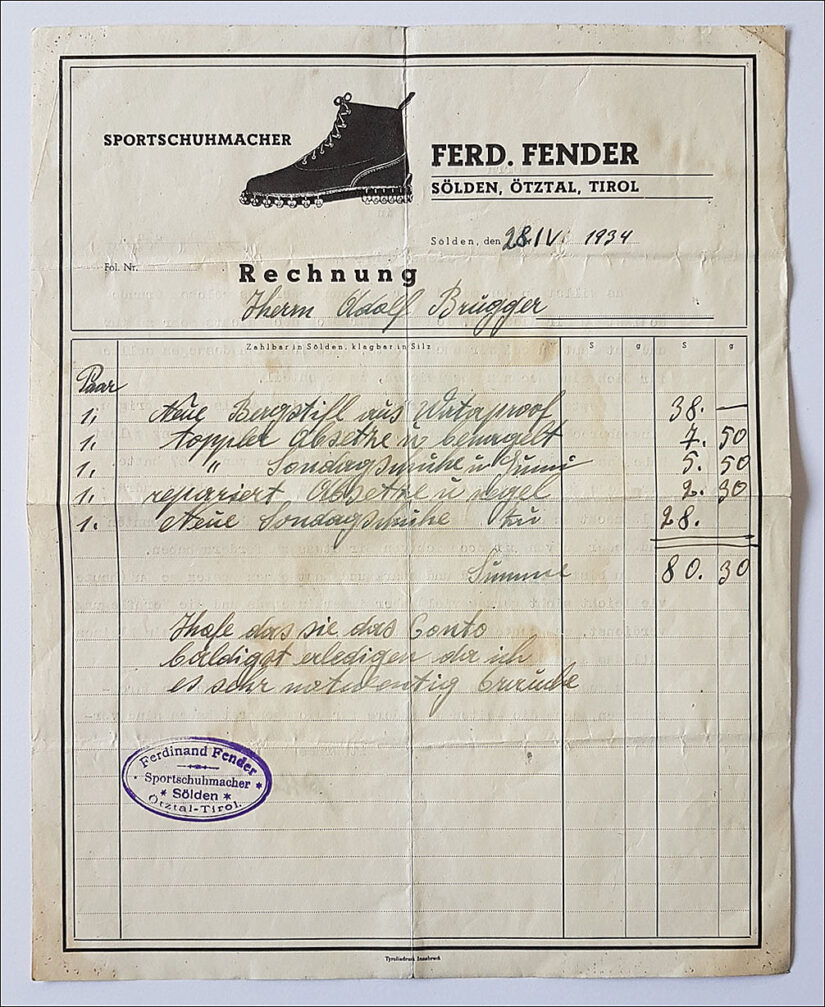 SPORTSCHUHMACHER
FERD. FENDER
SÖLDEN, ÖTZTAL, TIROL
Sölden, den 28.IV. 1934
Fol. Nr.
Rechnung
Herrn Adolf Brugger
Zahlbar in Sölden, klagbar in Silz
S g S g
Paar
1. Neue Bergstifl aus Waterproof 38. —
1. toppler Absethe u benagelt 7. 50
1. " Sondagschuhe u Gumi 5. 50
1. repariert Absethe u Negel 2. 30
1. Neue Sondagschuhe 28.
Summe 80. 30
Ihofe das sie das Conto
baldigst erledigen da ich
es sehr notwentig brauche
Ferdinand Fender
Sportschuhmacher
* Sölden *
Ötztal-Tirol.
Tyroliadruck Innsbruck